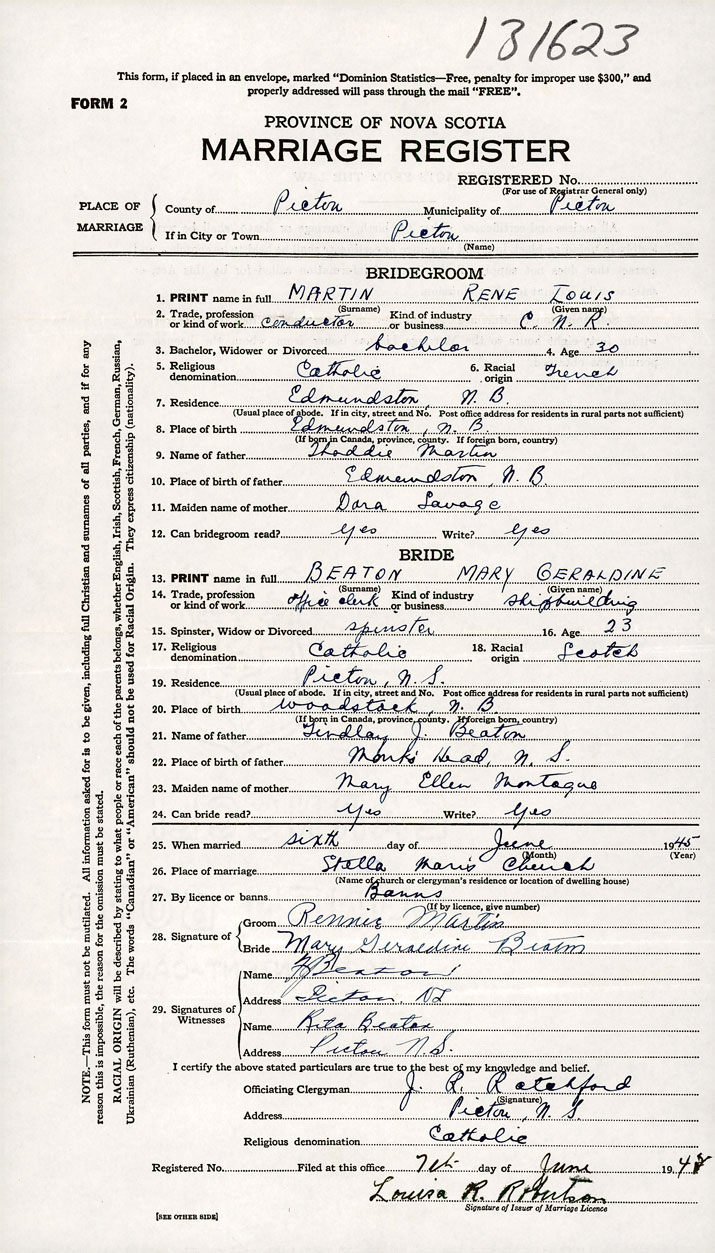 131623
This form, if placed in an envelope, marked "Dominion Statistics—Free, penalty for improper use $300," and
properly addressed will pass through the mail "FREE".
FORM 2
PROVINCE OF NOVA SCOTIA
MARRIAGE REGISTER
REGISTERED No.
(For use of Registrar General only)
PLACE OF MARRIAGE
County of Pictou Municipality of Pictou
If in City or Town Pictou
(Name)
BRIDEGROOM
1. PRINT name in full MARTIN RENE LOUIS
(Surname) (Given name)
2. Trade, profession or kind of work conductor Kind of industry or business C. N. R.
3. Bachelor, Widower or Divorced bachelor 4. Age 30
5. Religious denomination Catholic 6. Racial origin French
7. Residence Edmundston, N. B.
(Usual place of abode. If in city, street and No. Post office address for residents in rural parts not sufficient)
8. Place of birth Edmundston, N. B.
(If born in Canada, province, county. If foreign born, country)
9. Name of father Thaddie Martin
10. Place of birth of father Edmundston, N. B.
11. Maiden name of mother Dora Savage
12. Can bridegroom read? yes Write? yes
BRIDE
13. PRINT name in full BEATON MARY GERALDINE
(Surname) (Given name)
14. Trade, profession or kind of work office clerk Kind of industry or business shipbuilding
15. Spinster, Widow or Divorced spinster 16. Age 23
17. Religious denomination Catholic 18. Racial origin Scotch
19. Residence Pictou, N. S.
(Usual place of abode. If in city, street and No. Post office address for residents in rural parts not sufficient)
20. Place of birth Woodstock, N. B
(If born in Canada, province, county. If foreign born, country)
21. Name of father Findlay J. Beaton
22. Place of birth of father Monks Head, N. S.
23. Maiden name of mother Mary Ellen Montague
24. Can bride read? yes Write? yes
25. When married sixth day of June 1945
(Month) (Year)
26. Place of marriage Stella Maris Church
(Name of church or clergyman's residence or location of dwelling house)
27. By licence or banns Banns
(If by licence, give number)
28. Signature of
Groom Rennie Martin
Bride Mary Geraldine Beaton
29. Signatures of Witnesses
Name Beaton
Address Pictou, NS
Name Rita Beaton
Address Pictou N.S.
I certify the above stated particulars are true to the best of my knowledge and belief.
Officiating Clergyman J. R. Ratchford
(Signature)
Address Pictou, N. S.
Religious denomination Catholic
Registered No. Filed at this office 7th day of June 19
Louisa R. Robertson
Signature of Issuer of Marriage Licence
[SEE OTHER SIDE]
NOTE.—This form must not be mutilated. All information asked for is to be given, including full Christian and surnames of all parties, and if for any
reason this is impossible, the reason for the omission must be stated.
RACIAL ORIGIN will be described by stating to what people or race each of the parents belongs, whether English, Irish, Scottish, French, German, Russian,
Ukrainian (Ruthenian), etc. The words "Canadian" or "American" should not be used for Racial Origin. They express citizenship (nationality).